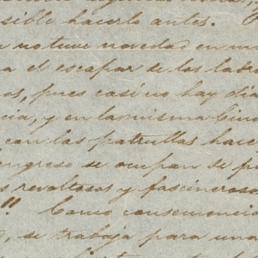 sible hacerlo antes.
no tuve novedad en mi
a el escapar de los ladro
os, pues casi no hay dia
cia, y en la misma Ciud
con las patrullas hace
ongreso se ocupan de p
s revoltosos y fascineroso
!! Como consecuencia
o, se trabaja para una